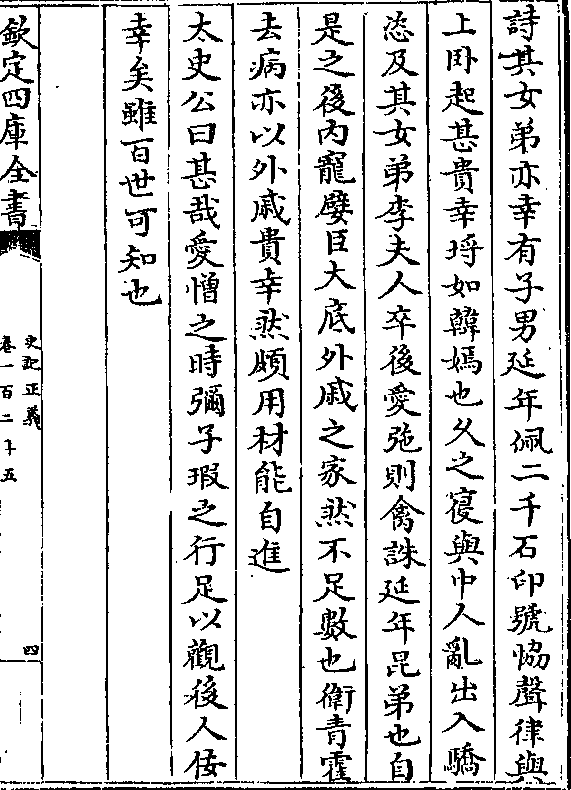 詩其女弟亦幸有子男延年佩二千石印號協聲律與
上卧起甚貴幸埒如韓嫣也久之寖與中人亂出入驕
恣及其女弟李夫人卒後愛弛則禽誅延年昆弟也自
是之後内寵嬖臣大底外戚之家然不足數也衛青霍
去病亦以外戚貴幸然頗用材能自進
太史公曰甚哉愛憎之時彌子瑕之行足以觀後人佞
幸矣雖百世可知也
欽定四庫全書
史記正義
卷一百二十五
四